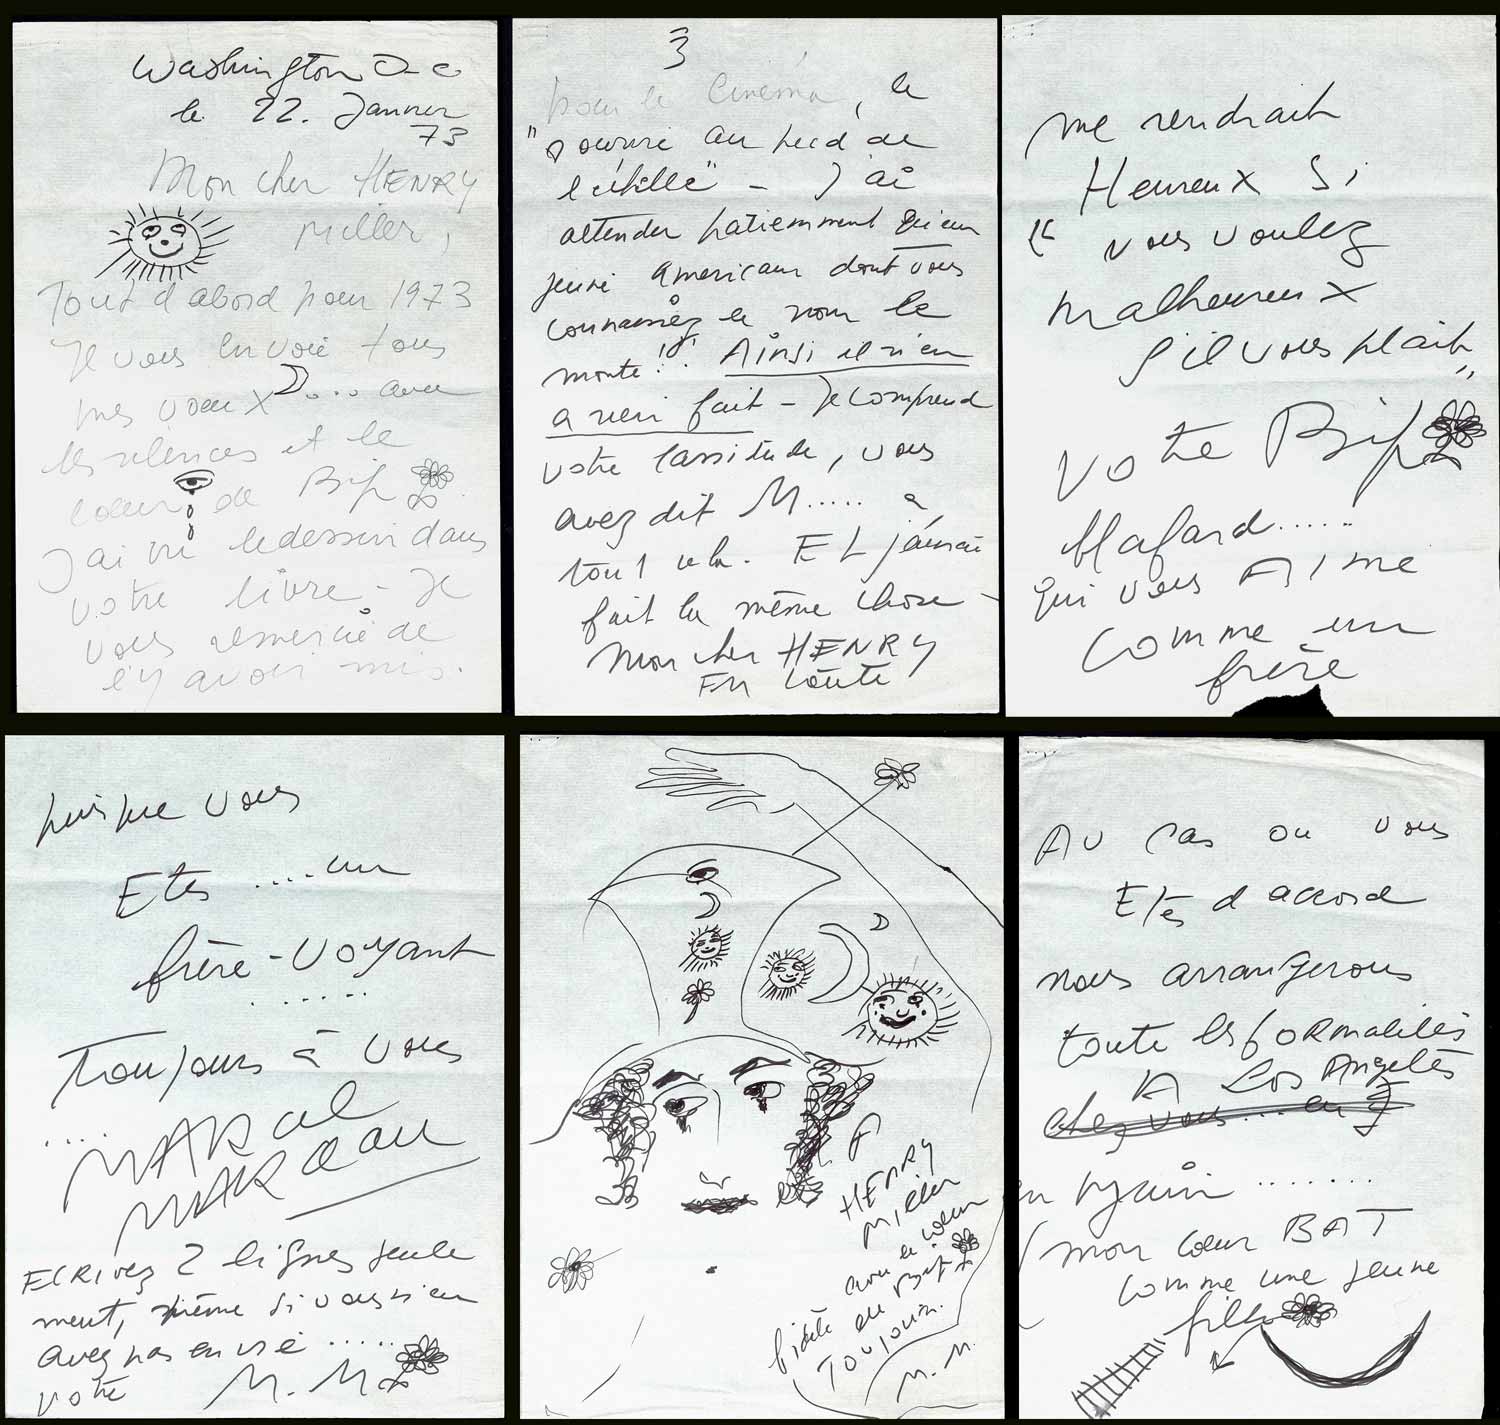 Washington D-C
le 22. Janvier
73
Mon cher HENRY
Miller,
Tout d'abord pour 1973
Je vous envoie tous
mes voeux ... avec
les silences et le
coeur de Bip
J'ai vu le dessin dans
votre livre - Je
vous remercie de
l'y avoir mis.
3
pour le Cinéma, le
"Sourire au pied de
l'échelle" - J'ai
attendu patiemment qu'un
jeune americain dont vous
connaissiez le nom le
monte!! Ainsi il n'en
a rien fait - Je comprend
votre lassitude, vous
avez dit M..... à
tout cela. Et j'aurai
fait la même chose -
Mon cher HENRY
En
me rendrait
Heureux si
" vous voulez
malheureux
s'il vous plait"
Votre Bip
blafard......
qui vous Aime
comme un
frère
puisque vous
Etes ....un
frère-Voyant
......
Toujours à vous
.... MARCEL
MARCEAU
ECRIVEZ 2 lignes seule
ment, même si vous n'en
avez pas envie .....
votre M. M.
A
HENRY
Miller
avec le coeur
fidèle de Bip
Toujours.
M. M.
Au cas ou vous
Etes d'accord
nous arrangerons
toute les formalités
A Los Angelès
chez vous... en
en Juin .......
(mon coeur BAT
comme une jeune
fille